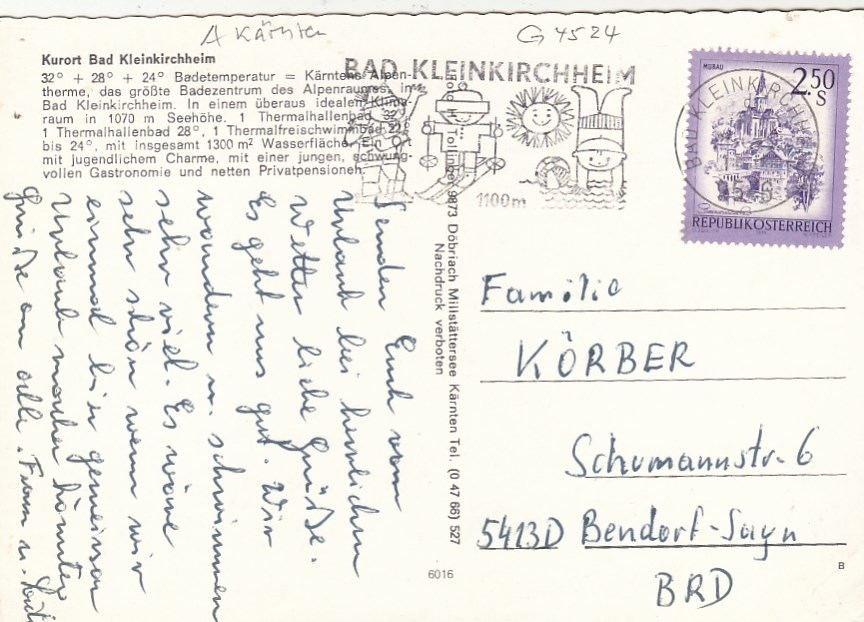 A Kärnten
G 4524
Kurort Bad Kleinkirchheim
32° + 28° + 24° Badetemperatur = Kärntens Alpen-
therme, das größte Badezentrum des Alpenraumes, in
Bad Kleinkirchheim. In einem überaus idealen Klima-
raum in 1070 m Seehöhe. 1 Thermalhallenbad 32°
1 Thermalhallenbad 28°, 1 Thermalfreischwimmbad 22°
bis 24°, mit insgesamt 1300 m² Wasserfläche. Ein Ort
mit jugendlichem Charme, mit einer jungen, schwung-
vollen Gastronomie und netten Privatpensionen.
BAD KLEINKIRCHHEIM
1100m
BAD KLEINKIRCHHEIM
MURAU
2.50
S
REPUBLIK ÖSTERREICH
Senden Euch vom
Urlaub bei herrlichem
Wetter liebe Grüße.
Es geht uns gut. Wir
wandern u. schwimmen
sehr viel. Es wäre
sehr schön wenn wir
einmal hier gemeinsam
Urlaub machen könnten
Grüße an alle. Fran u.
9873 Döbriach Millstättersee Kärnten Tel. (0 47 66) 527
Nachdruck verboten
Familie
KÖRBER
Schumannstr. 6
5413D Bendorf-Sayn
BRD
6016
B